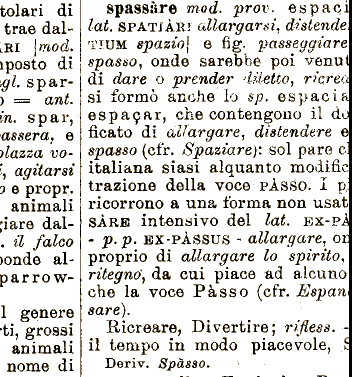 tolari di
trae dal-
ARI [mod.
mposto di
ngl. spar-
o = ant.
in. spar,
passera, e
olazza vo-
, agitarsi
o e propr.
animali
giare dal-
. il falco
ponde al-
parrow-
l genere
rti, grossi
animali
nome di
spassàre mod. prov. espaci
lat. SPATIÀRI allargarsi, distende
TIUM spazio] e fig. passeggiare
spasso, onde sarebbe poi venut
di dare o prender diletto, ricrea
si formò anche lo sp. espacia
espaçar, che contengono il do
ficato di allargare, distendere e
spasso (cfr. Spaziare): sol pare c
italiana siasi alquanto modific
trazione della voce PÀSSO. I p
ricorrono a una forma non usat
SÀRE intensivo del lat. EX-PA
- p. p. EX-PÀSSUS - allargare, on
proprio di allargare lo spirito,
ritegno, da cui piace ad alcuno
che la voce Pàsso (cfr. Espan
sare).
Ricreare, Divertire; rifless. -
il tempo in modo piacevole, S
Deriv. Spàsso.